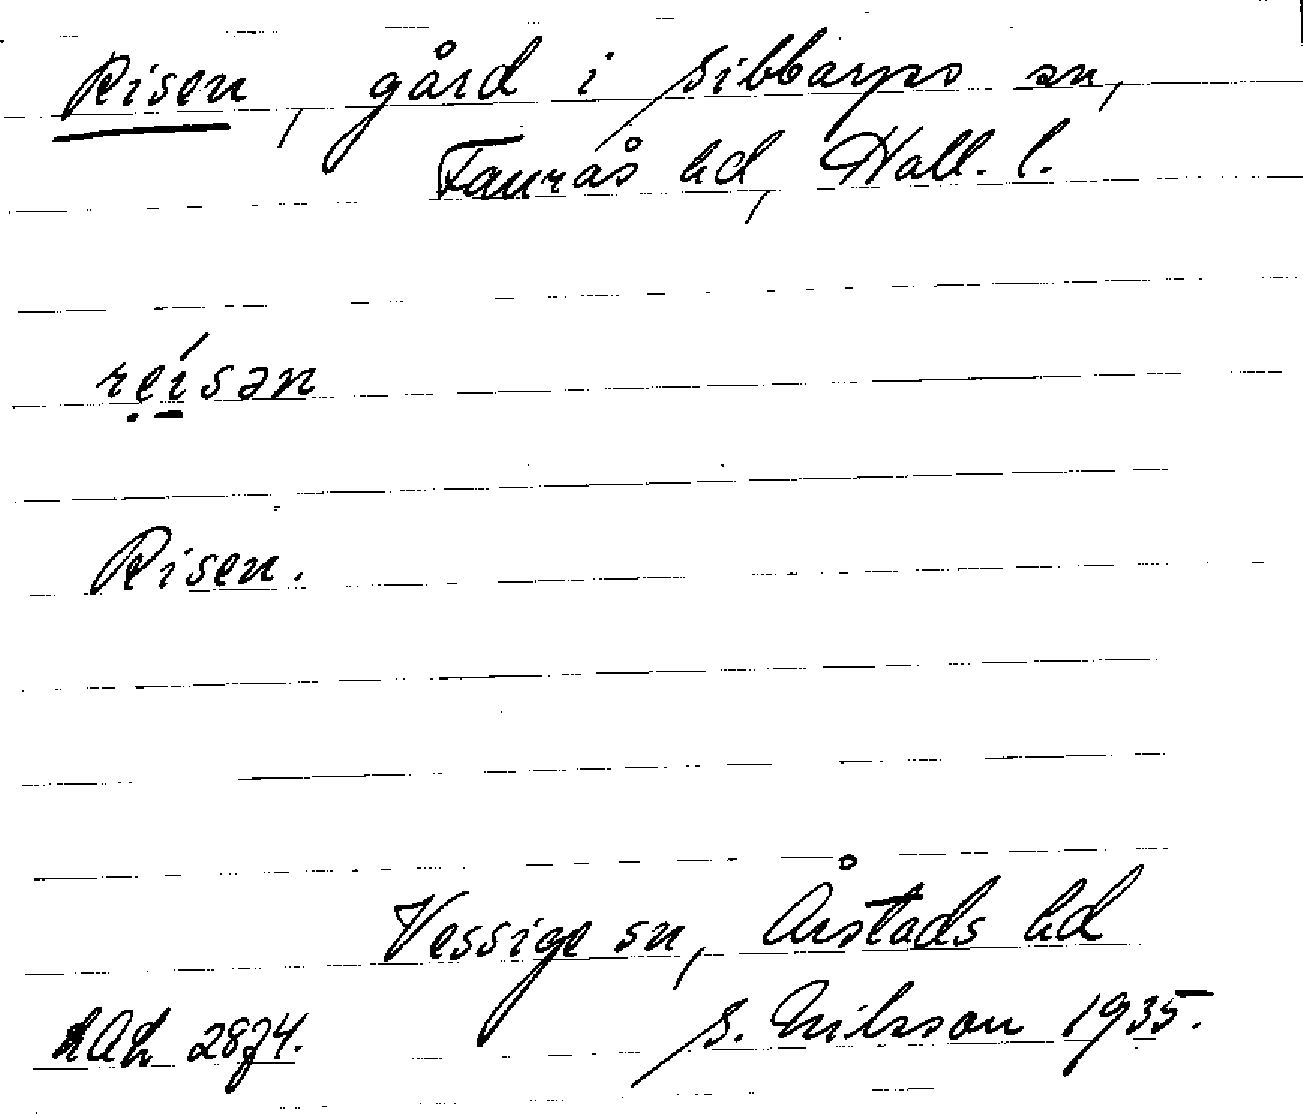 Risen, gård i Sibbarps sn,
Faurås hd, Hall. l.
rẹí̠sən
Risen.
Vessige sn, Årstads hd
LAL 2874. S. Nilsson 1935.